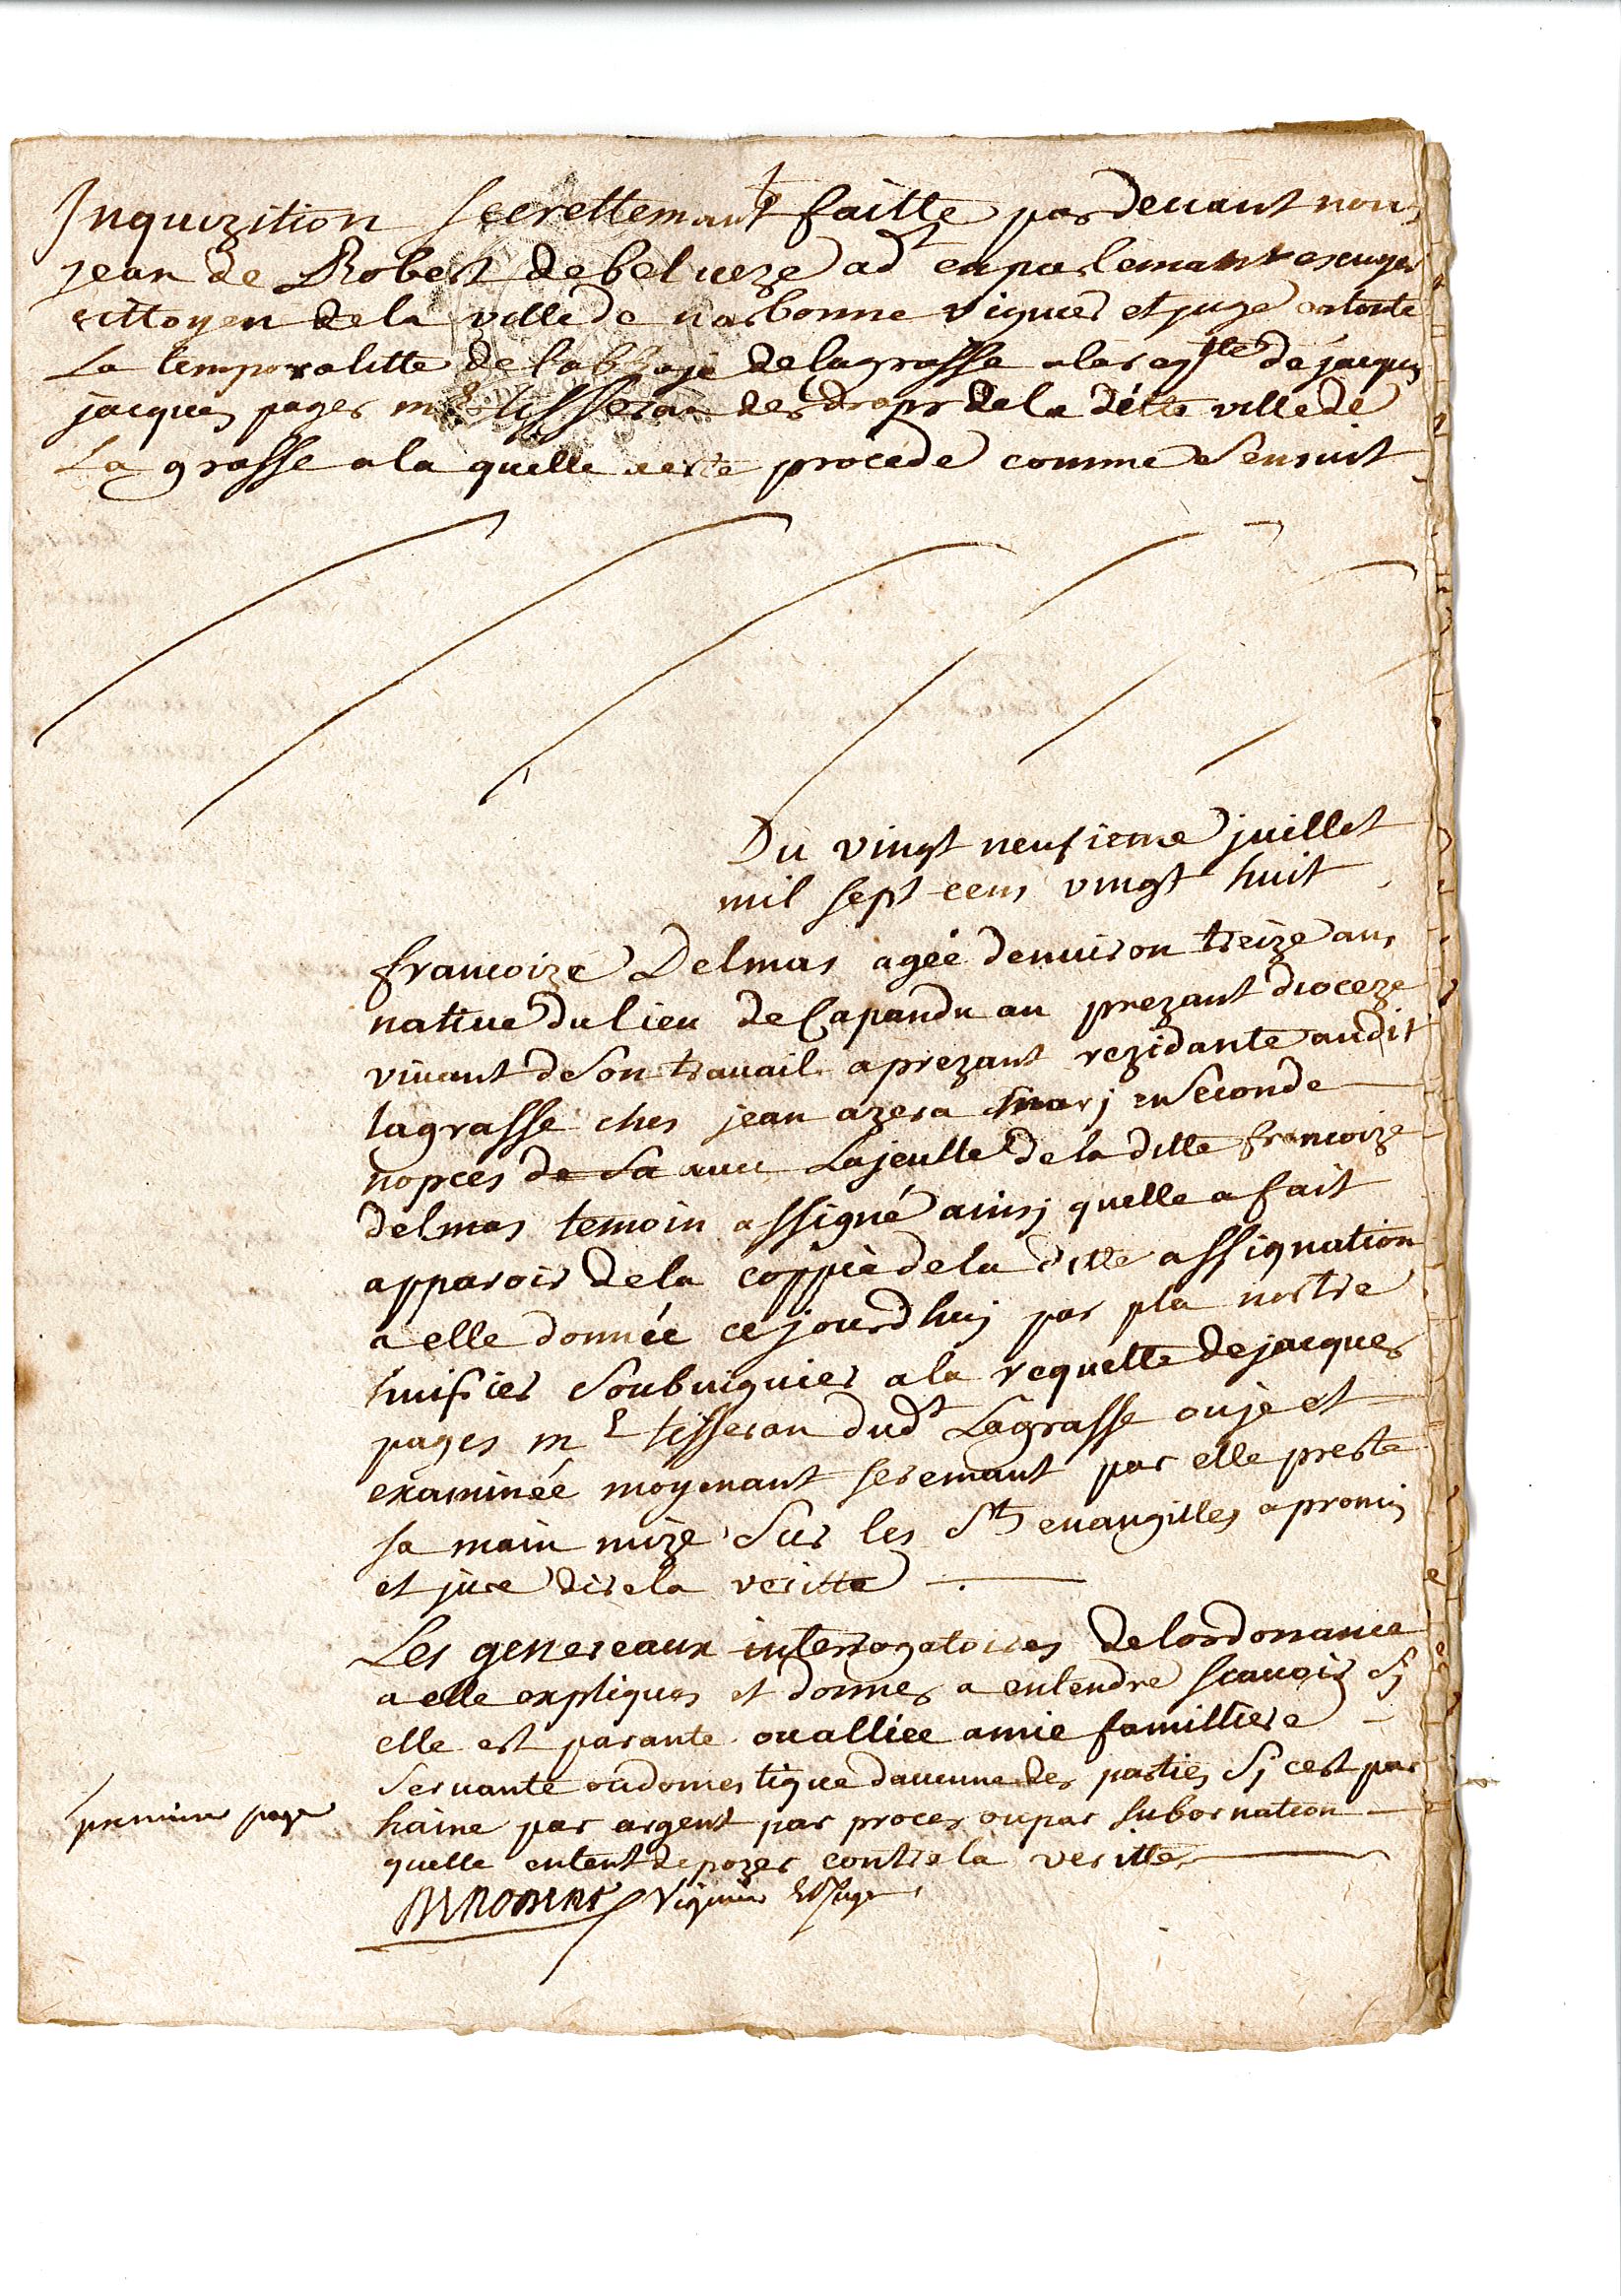 Inquizition secrettemant faitte par devant nous
jean de Robert de belveze adt en parlemant escuyer
cittoyen de la ville de narbonne viguier et juge en toute
La temporalitte de labbaye de lagrasse a la reqtte de jacques
jacques pages me tisseran des draps de la ditte ville de
La grasse a la quelle a este procede comme sensuit
Du vingt neufieme juillet
mil sept cens vingt huit
francoize Delmas agée denviron treize ans
native du lieu de Capandu au prezant dioceze
vivant de son travail a prezant rezidante audit
lagrasse ches jean azera mary en seconde
nopces de sa avec Lajeulle de la ditte francoize
delmas temoin assigné ainsy quelle a fait
apparoir de la coppie de la ditte assignation
a elle donnée ce jourdhuy par pla nostre
huissier soubviguier a la requette de jacques
pages me tisseran dudt Lagrasse ouje et
examinée moyenant seremant par elle preste
sa main mize sur les sts evangilles a promis
et jure dire la veritte
Les genereaux interrogatoires de lordonance
a elle expliques et donnes a entendre scavoir sy
elle est parante ou alliee amie familliere
servante ou domestique daucune des parties sy cest par
haine par argent par proces ou par subornation
quelle entent depozer contre la veritte
premiere page
DE ROBERT viguier et juge